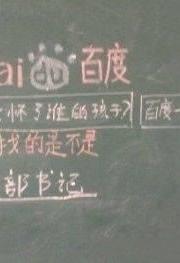 ai du 百度
怀了谁的孩子? 百度一
找的是不是
部书记